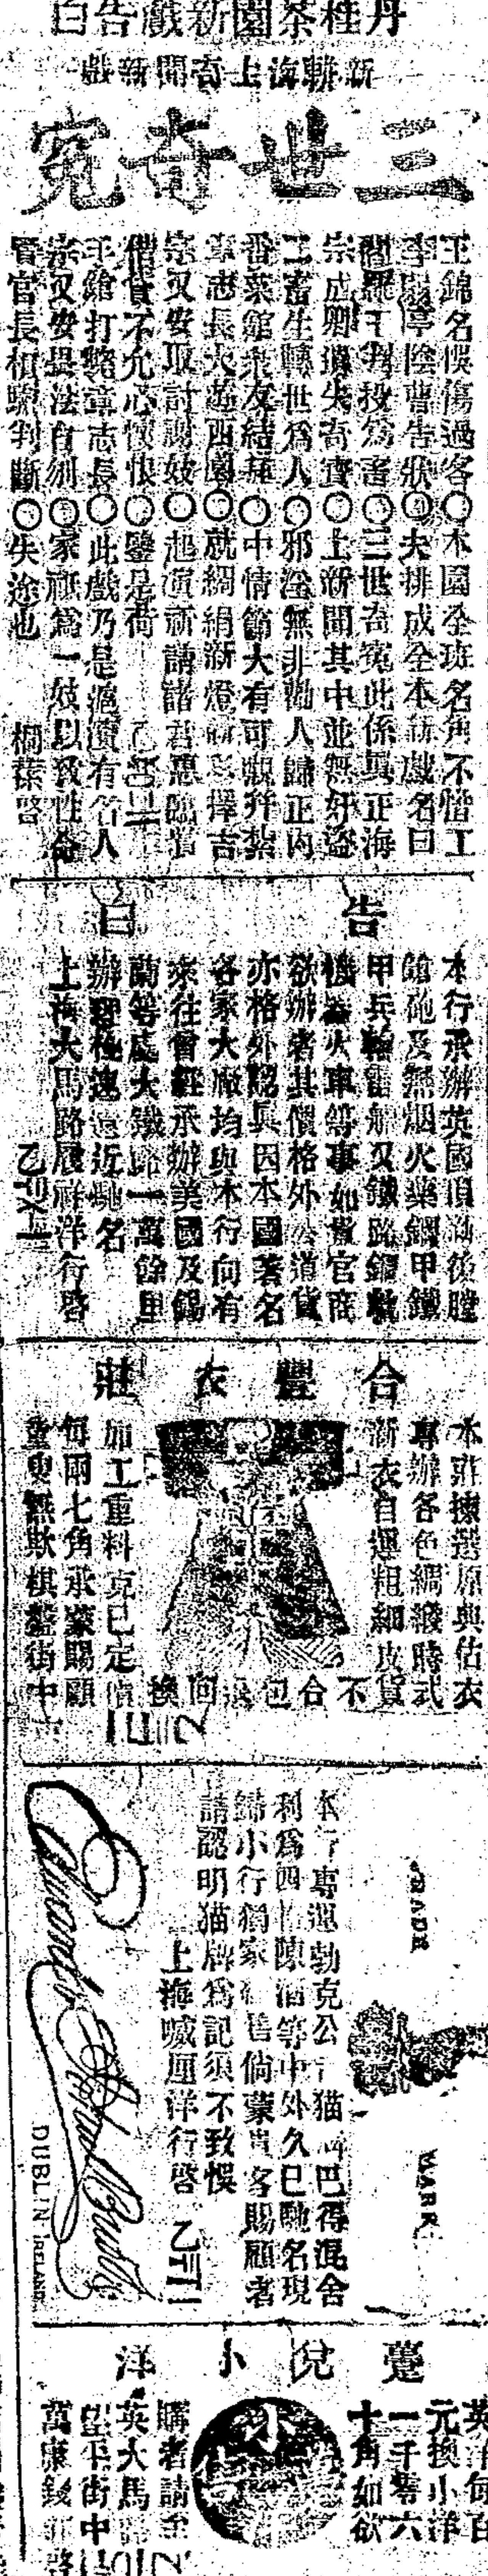 丹桂茶園新戲告白
新聞新戲
三世奇冤
王錦名悞傷過客〇本園全班名角不惜工
李陽亭陰曹告狀〇夫排成全本新戲名曰
閻羅王判投爲畜〇三世奇冤此係真正海
宗成卿遺失奇寶〇上新聞其中並無奸盜
三畜生轉世爲人〇邪淫無非勸人歸正內
番菜館衆友結拜〇中情節大有可觀幷紮
章志長火西園〇就綢絹新燈彩擇吉
宗又安取計謝妓〇起演新請諸君惠臨
借貸不允心懷恨〇鑒是荷
手鎗打斃章志長〇此戲乃是滬濱有名人
宗又安畏法自刎〇家祇爲一妓以致性命
賢官長相驗判斷〇失途也 啓
告白
本行承辦英國頂後膛
鎗砲及無烟火藥鋼甲鐵
甲兵輪雷艇又鐵路鋼軌
機器火車等事如貴官商
欲辦者其價格外公道貨
亦格外認真因本國著名
各家大廠均與本行向有
來往曾經承辦美國及錫
蘭等處大鐵路一萬餘里
辦理極速遠近馳名
上海大馬路履祥洋行啓
合豐衣莊
本莊揀選原典估衣
專辦各色綢緞時式
新衣自運粗細皮貨
不合包退回換
加工重料克己定價
每兩七角承蒙賜顧
童叟無欺棋盤街中
TRADE
MARK
本行專運勃克公司猫牌巴得混舍
利爲四陳酒等中外久已馳名現
歸小行獨家售倘蒙貴客賜顧者
請認明猫牌爲記須不致悞
上海威厘洋行啓
DUBLIN IRELAND
躉兌小洋
英洋每百
元換小洋
一千零六
十角如欲
購者請至
英大馬路
望平街中
萬康錢莊啓